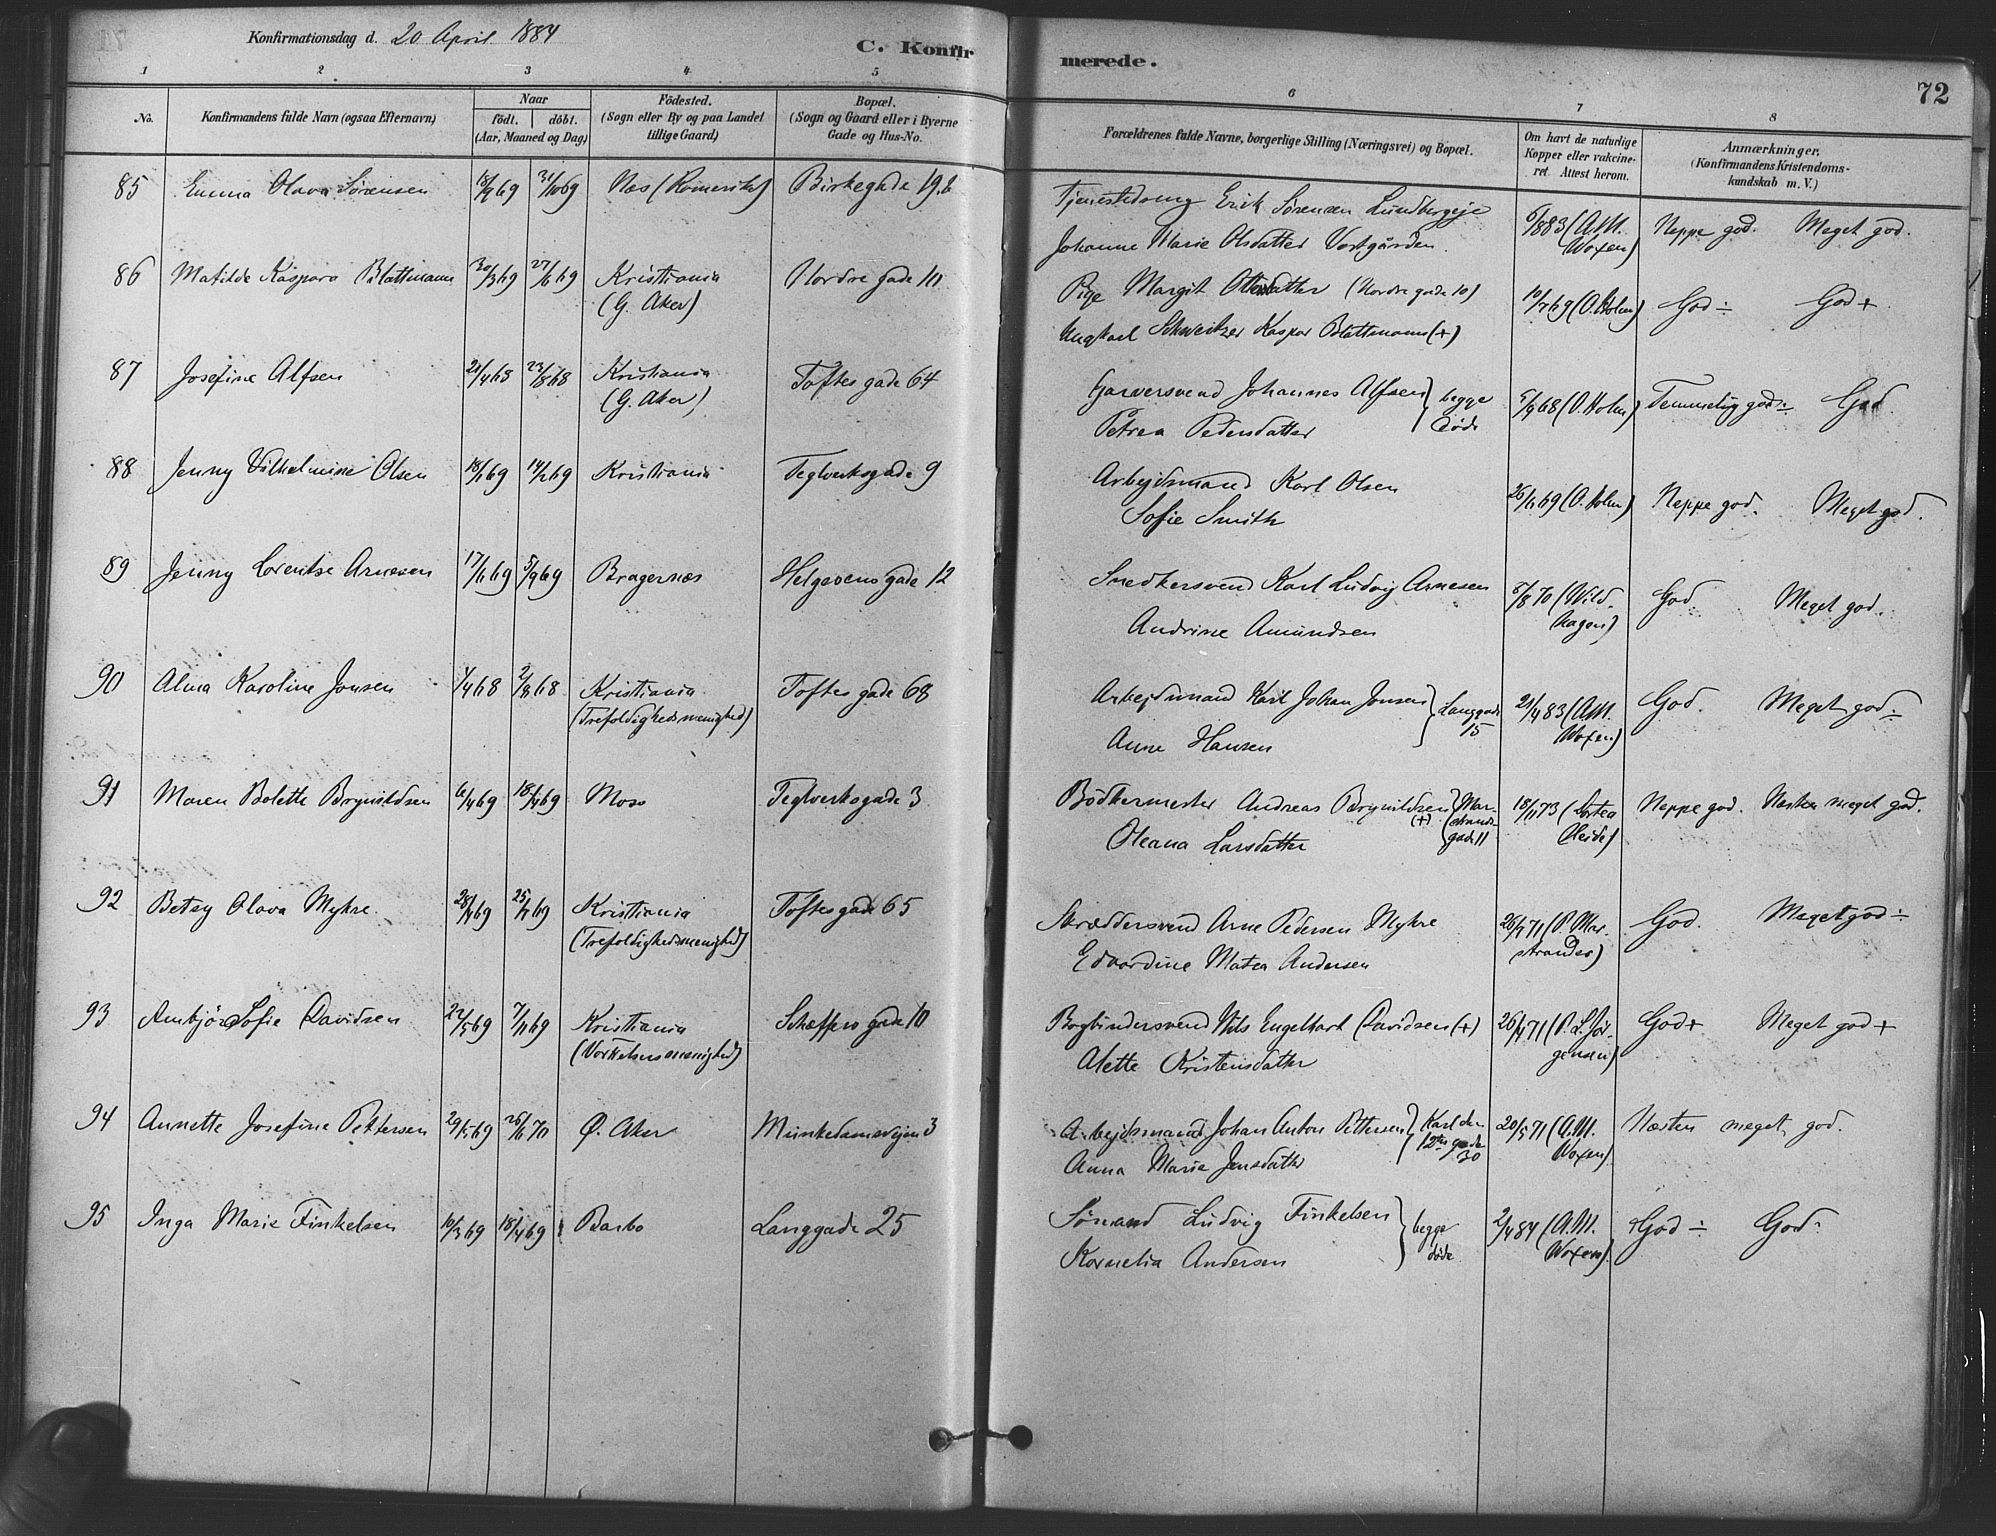 Konfirmationsdag d. 20 April 1884
C. Konfirmerede.
72
1 2 3 4 5 6 7 8
No.
Konfirmandens fulde Navn (ogsaa Efternavn)
Naar
födt. döbt.
(Aar, Maaned og Dag)
Födested.
(Sogn eller By og paa Landet
tillige Gaard)
Bopæl.
(Sogn og Gaard eller i Byerne
Gade og Hus-No.
Forældrenes fulde Navne, borgerlige Stilling (Næringsvei) og Bopæl.
Om havt de naturlige
Kopper eller vakcine-
ret. Attest herom.
Anmærkninger.
(Konfirmandens Kristendoms-
kundskab m. V.)
85 Emma Olava Sørensen 18/9 69 31/10 69 Nes (Romerike) Birkegade 19b
Tjenestedreng Erik Sørensen Lundbergeje 6/8 83 (A.M. Neppe god. Meget god.
Johanne Marie Olsdatter Vestgården. Woxen)
86 Matilde Kaspara Blattmann 30/3 69 27/6 69 Kristiania Nordre gade 10
(G. Aker)
Pige Margit Ottersdatter (Nordre gade 10) 10/7 69 (O. Holm) God ÷ God +
Ungkarl Schweitzer Kaspar Blattmann (+)
87 Josefine Alfsen 21/4 68 23/8 68 Kristiania Toftes gade 64
(G. Aker)
Garversvend Johannes Alfsen begge 5/9 68 (O. Holm) Temmelig god ÷ God.
Petrea Pedersdatter döde
88 Jenny Vilhelmine Olsen 18/1 69 14/2 69 Kristiania Teglverksgade 9
Arbejdsmand Karl Olsen 26/6 69 (O. Holm) Neppe god. Meget god.
Sofie Smith
89 Jenny Lorentse Arnesen 17/6 69 5/9 69 Bragernæs Helgesens gade 12
Snedkersvend Karl Ludvig Arnesen 5/8 70 (Wild- God Meget god.
Andrine Amundsen hagen)
90 Alma Karoline Jonsen 1/4 68 2/8 68 Kristiania Toftes gade 68
(Trefoldighedsmenighed)
Arbejdsmand Karl Johan Jonsen Langgade 21/4 83 (A.M. God. Meget god ÷
Anne Hansen 15 Woxen)
91 Maren Bolette Brynildsen 6/4 69 18/4 69 Moss Teglverksgade 3
Bödkermester Andreas Brynildsen (+) Mar- 18/11 73 (Sortea Neppe god. Næsten meget god.
Oleana Larsdatter strands-
gade 11
92 Betsy Olava Myhre 28/4 69 25/7 69 Kristiania Toftes gade 65
(Trefoldighedsmenighed)
Skræddersvend Arne Pedersen Myhre 26/7 71 (P. Mar- God. Meget god ÷
Edvardine Matea Andersen strander)
93 Ambjör Sofie Davidsen 22/5 69 7/11 69 Kristiania Scheffers gade 10
(Vor Frelsers menighed)
Bogbindersvend Nils Engelhart Davidsen (+) 26/4 71 (P. L. Jör- God + Meget god +
Alette Kristensdatter gensen)
94 Annette Josefine Pettersen 29/5 69 26/6 70 Ø. Aker Munkedamsvejen 3
Arbejdsmand Johan Anton Pettersen Karl den 20/5 71 (A.M. Næsten meget god.
Anna Marie Jensdatter 12tes gade Woxen)
30
95 Inga Marie Finkelsen 10/3 69 18/4 69 Barbo Langgade 25
Sömand Ludvig Finkelsen begge 2/4 84 (A.M. God ÷ God.
Kornelia Andersen döde Woxen)